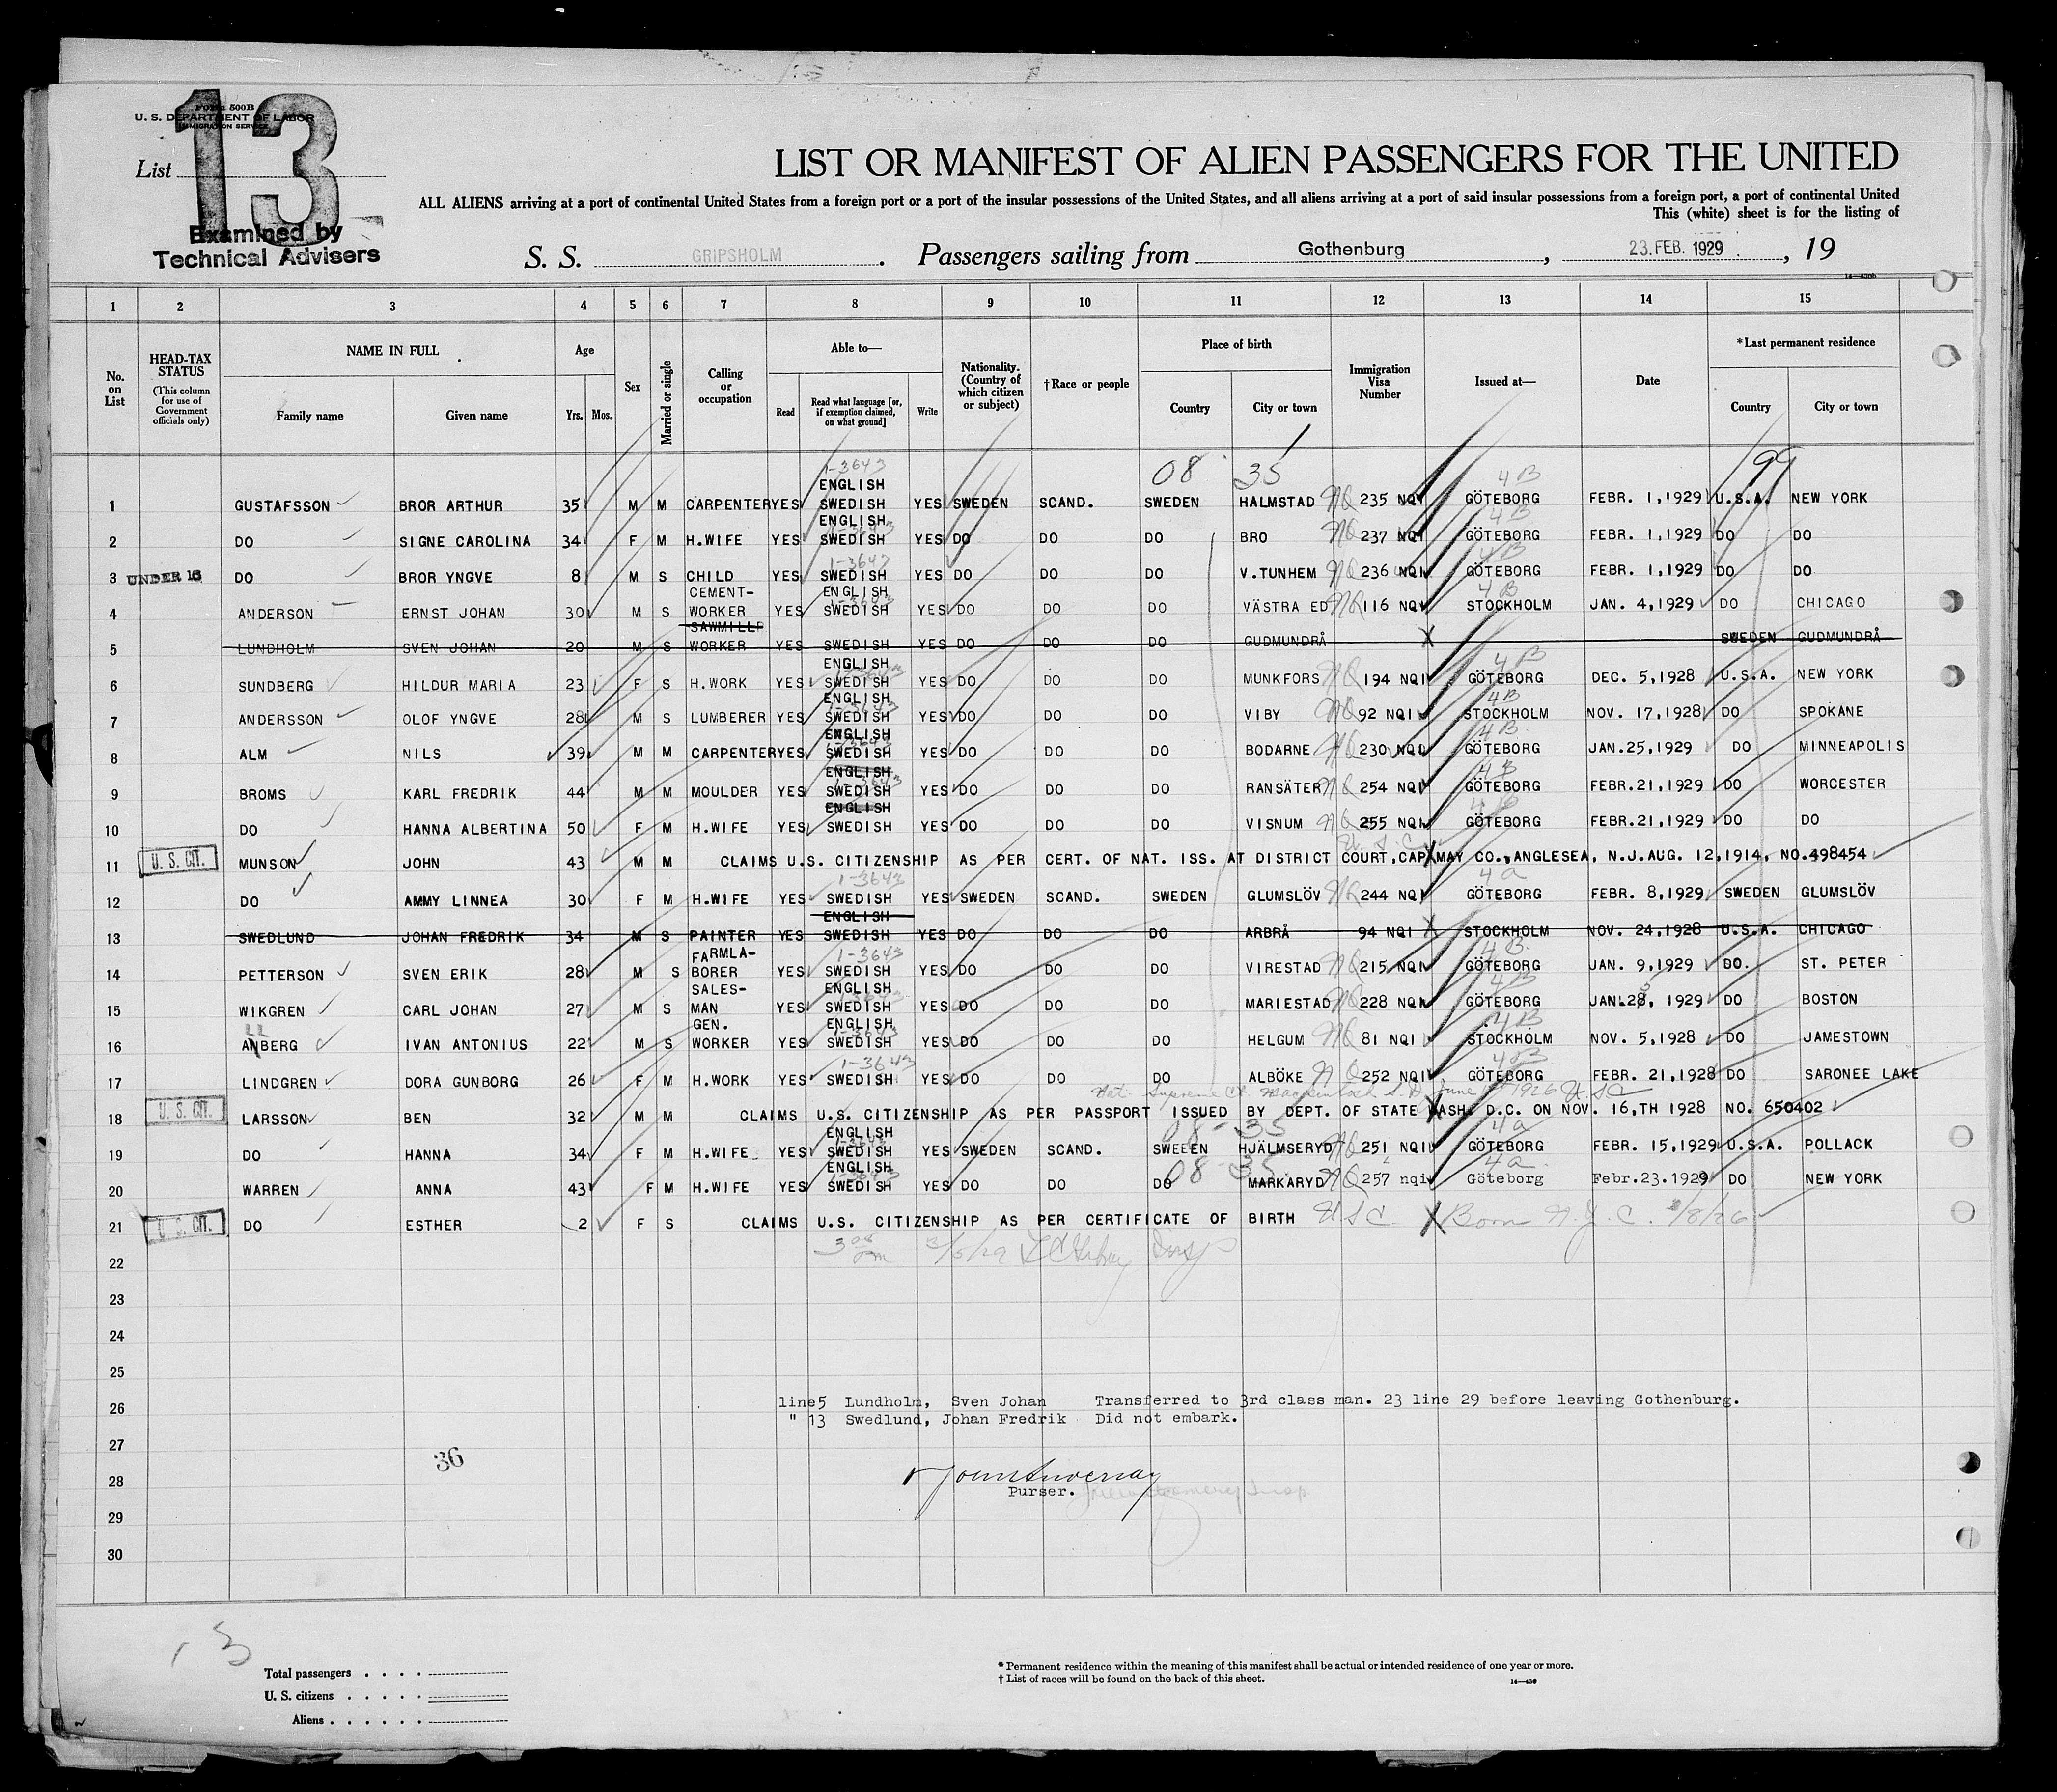 13
FORM 500B
U. S. DEPARTMENT OF LABOR
IMMIGRATION SERVICE
List
Examined by
Technical Advisers
LIST OR MANIFEST OF ALIEN PASSENGERS FOR THE UNITED
ALL ALIENS arriving at a port of continental United States from a foreign port or a port of the insular possessions of the United States, and all aliens arriving at a port of said insular possessions from a foreign port, a port of continental United
This (white) sheet is for the listing of
S. S. GRIPSHOLM . Passengers sailing from Gothenburg , 23.FEB. 1929 , 19
1 2 3 4 5 6 7 8 9 10 11 12 13 14 15
No. on List
HEAD-TAX STATUS (This column for use of Government officials only)
NAME IN FULL
Family name Given name
Age
Yrs. Mos.
Sex
Married or single
Calling or occupation
Able to—
Read Read what language [or, if exemption claimed, on what ground] Write
Nationality. (Country of which citizen or subject)
†Race or people
Place of birth
Country City or town
Immigration Visa Number
Issued at—
Date
*Last permanent residence
Country City or town
08 35 99
1-3643 4B
ENGLISH
1 GUSTAFSSON BROR ARTHUR 35 M M CARPENTER YES SWEDISH YES SWEDEN SCAND. SWEDEN HALMSTAD NQ 235 NQI GÖTEBORG FEBR. 1,1929 U.S.A. NEW YORK
ENGLISH 4B
2 DO SIGNE CAROLINA 34 F M H.WIFE YES SWEDISH YES DO DO DO BRO NQ 237 NQI GÖTEBORG FEBR. 1,1929 DO DO
1-3643 4B
3 UNDER 16 DO BROR YNGVE 8 M S CHILD YES SWEDISH YES DO DO DO V.TUNHEM NQ 236 NQI GÖTEBORG FEBR. 1,1929 DO DO
CEMENT- ENGLISH 4B
4 ANDERSON ERNST JOHAN 30 M S WORKER YES SWEDISH YES DO DO DO VÄSTRA ED NQ 116 NQI STOCKHOLM JAN. 4,1929 DO CHICAGO
SAWMILL
5 LUNDHOLM SVEN JOHAN 20 M S WORKER YES SWEDISH YES DO DO DO GUDMUNDRÅ X SWEDEN GUDMUNDRÅ
ENGLISH 4B
6 SUNDBERG HILDUR MARIA 23 F S H.WORK YES SWEDISH YES DO DO DO MUNKFORS NQ 194 NQI GÖTEBORG DEC. 5,1928 U.S.A. NEW YORK
ENGLISH 4B
7 ANDERSSON OLOF YNGVE 28 M S LUMBERER YES SWEDISH YES DO DO DO VIBY NQ 92 NQI STOCKHOLM NOV. 17,1928 DO SPOKANE
ENGLISH 4B
8 ALM NILS 39 M M CARPENTER YES SWEDISH YES DO DO DO BODARNE NQ 230 NQI GÖTEBORG JAN.25,1929 DO MINNEAPOLIS
ENGLISH 4B
9 BROMS KARL FREDRIK 44 M M MOULDER YES SWEDISH YES DO DO DO RANSÄTER NQ 254 NQI GÖTEBORG FEBR.21,1929 DO WORCESTER
ENGLISH 4B
10 DO HANNA ALBERTINA 50 F M H.WIFE YES SWEDISH YES DO DO DO VISNUM NQ 255 NQI GÖTEBORG FEBR.21,1929 DO DO
U.S.C.
11 U. S. CIT. MUNSON JOHN 43 M M CLAIMS U.S. CITIZENSHIP AS PER CERT. OF NAT. ISS. AT DISTRICT COURT,CAP MAY CO., ANGLESEA, N.J.AUG. 12,1914, NO.498454
1-3643 4a
12 DO AMMY LINNEA 30 F M H.WIFE YES SWEDISH YES SWEDEN SCAND. SWEDEN GLUMSLÖV NQ 244 NQI GÖTEBORG FEBR. 8,1929 SWEDEN GLUMSLÖV
ENGLISH
13 SWEDLUND JOHAN FREDRIK 34 M S PAINTER YES SWEDISH YES DO DO DO ARBRÅ 94 NQI X STOCKHOLM NOV. 24,1928 U.S.A. CHICAGO
FARMLA- 1-3643 4B
14 PETTERSON SVEN ERIK 28 M S BORER YES SWEDISH YES DO DO DO VIRESTAD NQ 215 NQI GÖTEBORG JAN. 9,1929 DO. ST. PETER
SALES- ENGLISH 4B
15 WIKGREN CARL JOHAN 27 M S MAN YES SWEDISH YES DO DO DO MARIESTAD NQ 228 NQI GÖTEBORG JAN.28, 1929 DO BOSTON
GEN. ENGLISH 4B
16 ANBERG IVAN ANTONIUS 22 M S WORKER YES SWEDISH YES DO DO DO HELGUM NQ 81 NQI STOCKHOLM NOV. 5,1928 DO JAMESTOWN
1-3643 4B
17 LINDGREN DORA GUNBORG 26 F M H.WORK YES SWEDISH YES DO DO DO ALBÖKE NQ 252 NQI GÖTEBORG FEBR. 21,1928 DO SARONEE LAKE
Nat. Supreme Ct. June 1926 U.S.C.
18 U. S. CIT. LARSSON BEN 32 M M CLAIMS U.S. CITIZENSHIP AS PER PASSPORT ISSUED BY DEPT. OF STATE WASH. D.C. ON NOV. 16,TH 1928 NO. 650402
ENGLISH 08-35 4a
19 DO HANNA 34 F M H.WIFE YES SWEDISH YES SWEDEN SCAND. SWEEEN HJÄLMSERYD NQ 251 NQI GÖTEBORG FEBR. 15,1929 U.S.A. POLLACK
ENGLISH 08 35 4a
20 WARREN ANNA 43 F M H.WIFE YES SWEDISH YES DO DO DO MARKARYD NQ 257 nqi Göteborg Febr.23.1929 DO NEW YORK
21 U. S. CIT. DO ESTHER 2 F S CLAIMS U.S. CITIZENSHIP AS PER CERTIFICATE OF BIRTH U S C. X Born N.Y.C. /8/26
22
23
24
25
line5 Lundholm, Sven Johan Transferred to 3rd class man. 23 line 29 before leaving Gothenburg.
26
" 13 Swedlund, Johan Fredrik Did not embark.
27
36
28
Purser.
29
30
13
Total passengers
U. S. citizens
Aliens
* Permanent residence within the meaning of this manifest shall be actual or intended residence of one year or more.
† List of races will be found on the back of this sheet.
14—430